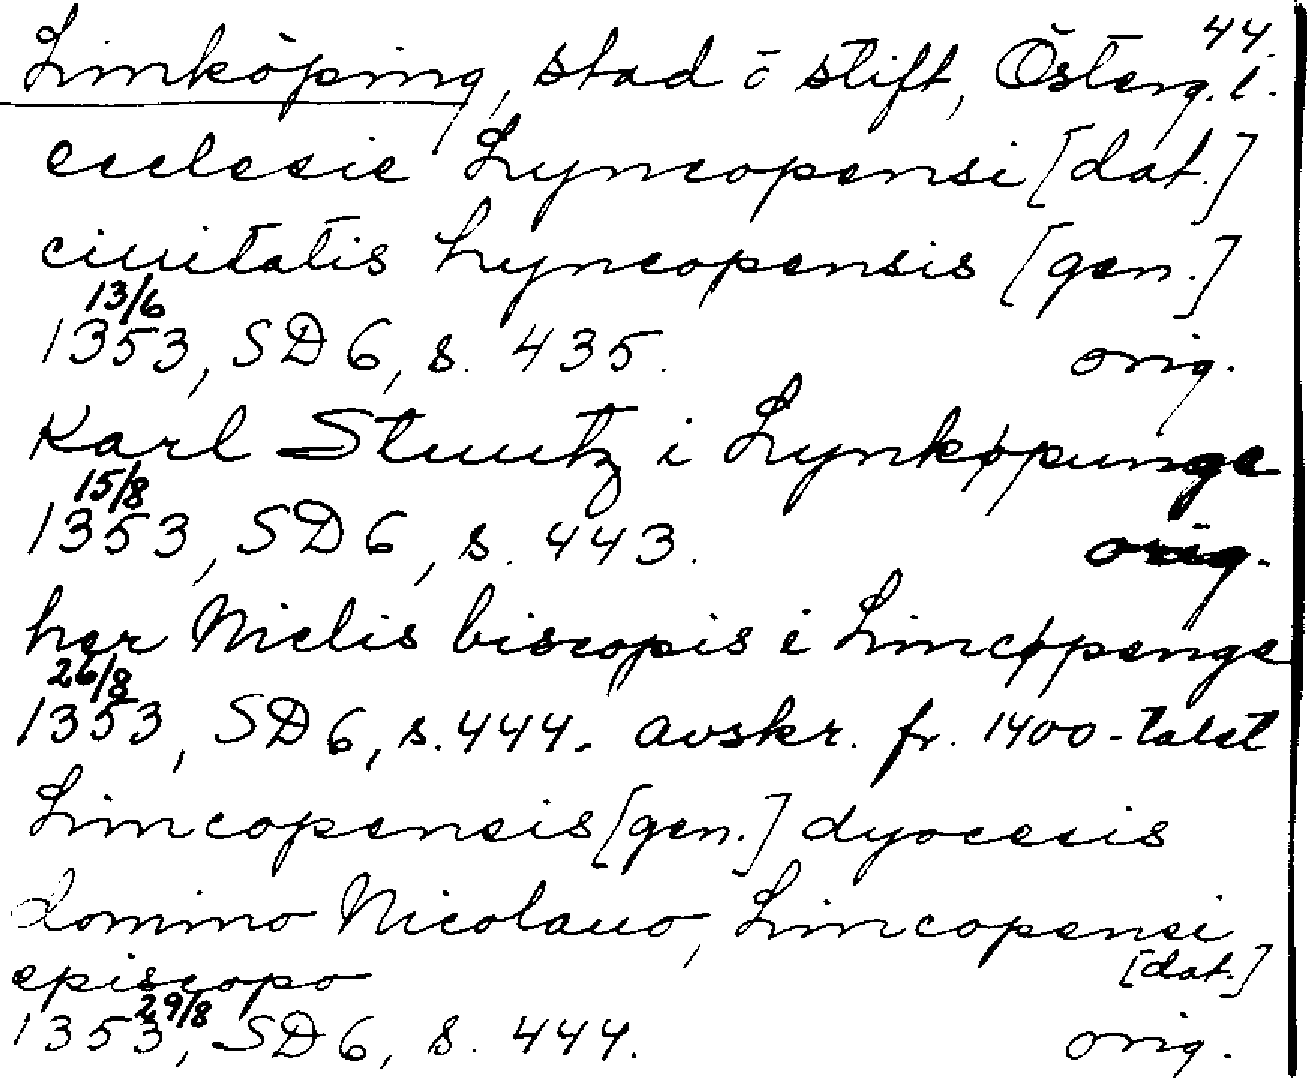 44.
Linköping, stad o stift, Österg. l.
ecclesie Lyncopensi [dat.]
ciuitatis Lyncopensis [gen.]
13/6
1353, SD 6, s. 435. orig.
Karl Stuutz i Lynkøpunge
15/8
1353, SD 6, s. 443. orig.
her Nielis biscopis i Lincøpenge
26/8
1353, SD 6, s. 444. avskr. fr. 1400-talet
Lincopensis [gen.] dyocesis
domino Nicolauo, Lincopensi
episcopo [dat.]
29/8
1353, SD 6, s. 444. orig.